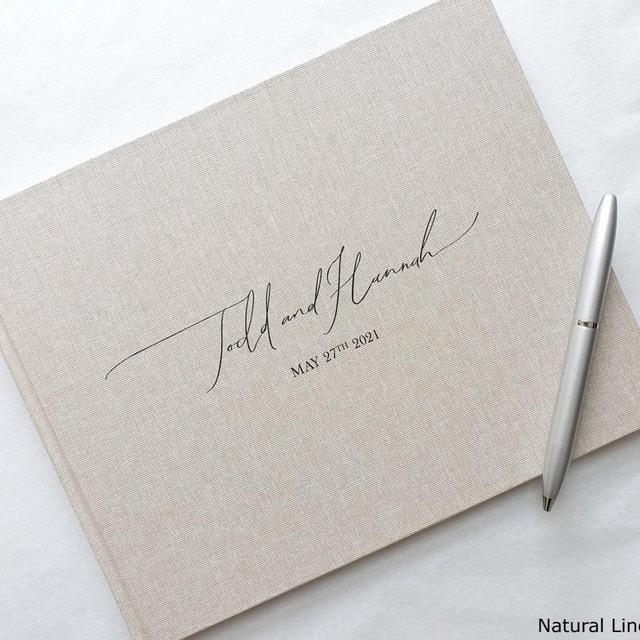 Todd and Hannah
MAY 27TH 2021
Natural Line